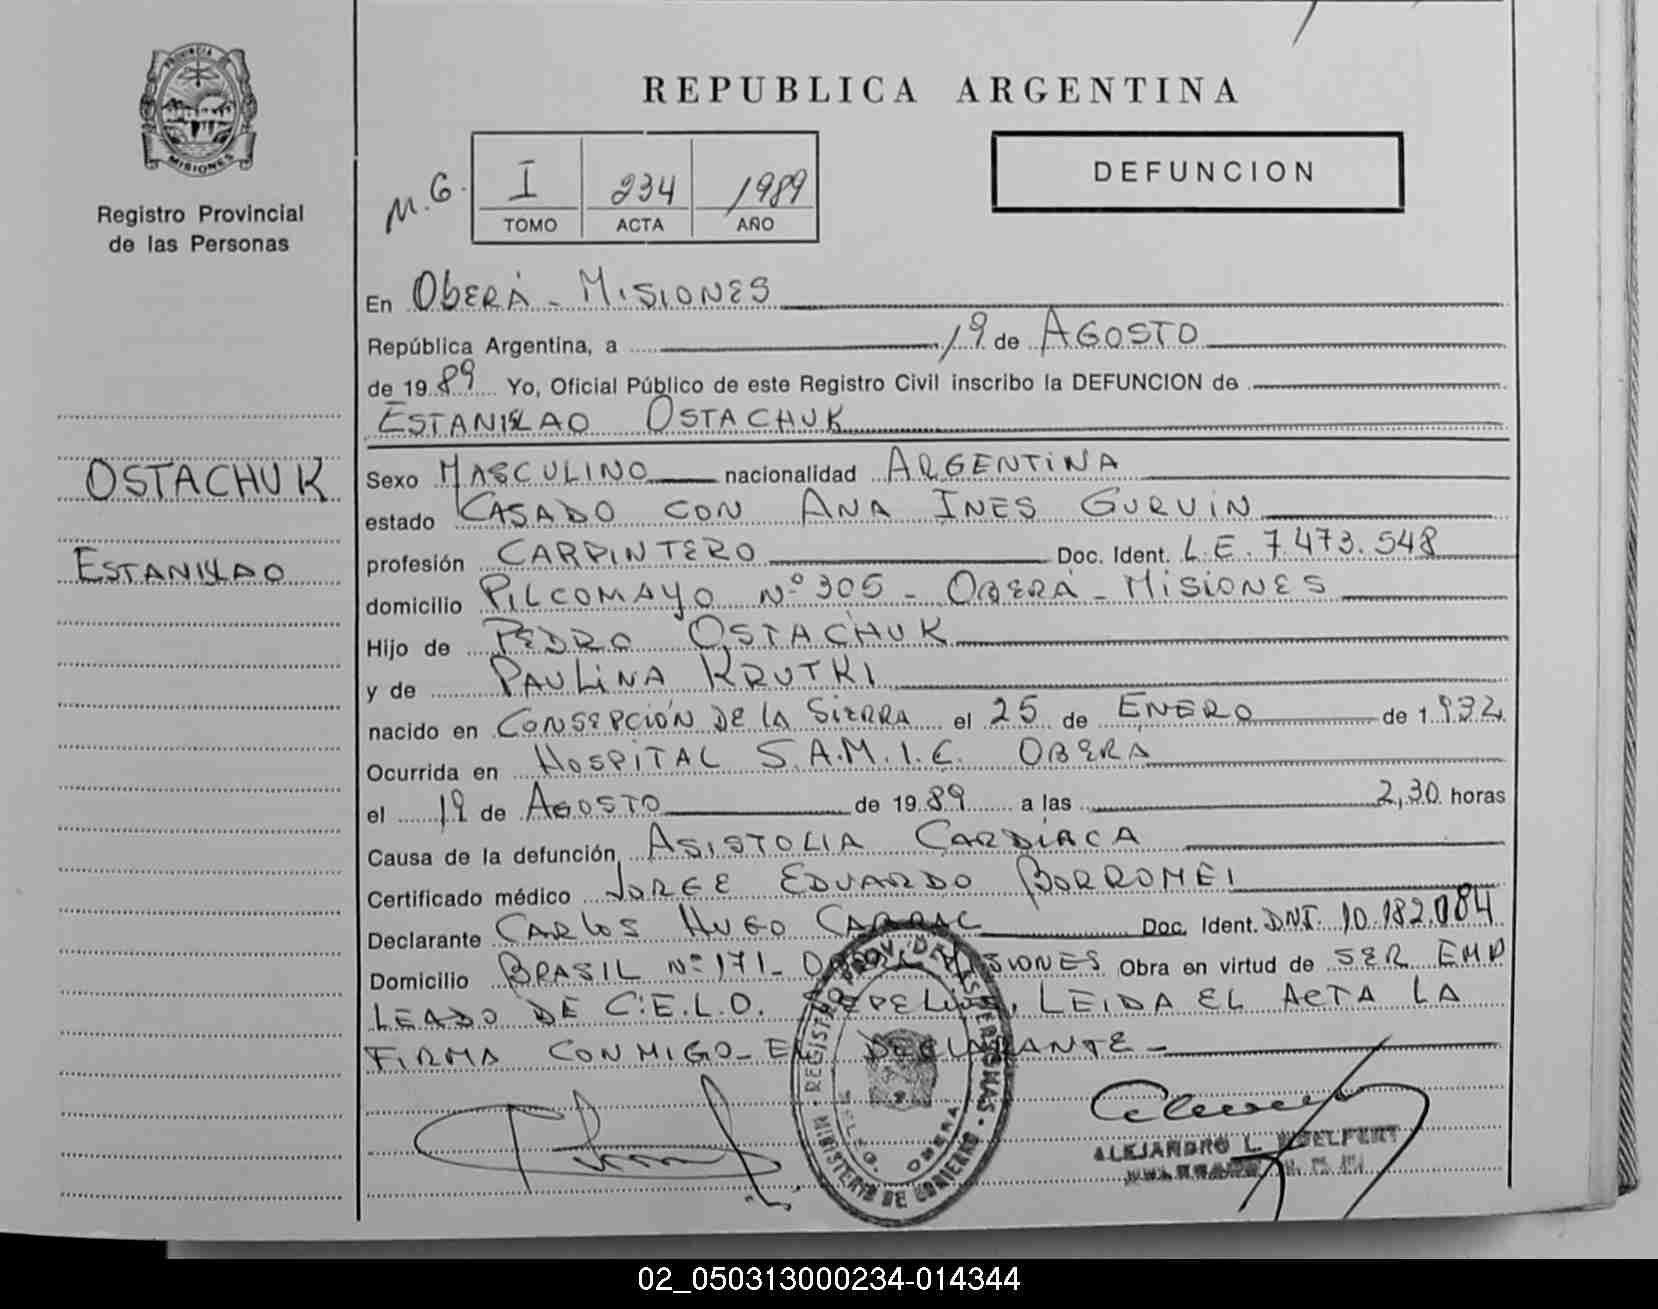 PROVINCIA
MISIONES
Registro Provincial
de las Personas
OSTACHUK
ESTANISLAO
REPUBLICA ARGENTINA
M.G. I 234 1989
TOMO ACTA AÑO
DEFUNCION
En OBERÁ - MISIONES
República Argentina, a 19 de AGOSTO
de 1989 Yo, Oficial Público de este Registro Civil inscribo la DEFUNCION de
ESTANISLAO OSTACHUK
Sexo MASCULINO nacionalidad ARGENTINA
estado CASADO CON ANA INES GURVIN
profesión CARPINTERO Doc. Ident. L.E. 7.473.548
domicilio PILCOMAYO Nº 305 - OBERÁ - MISIONES
Hijo de PEDRO OSTACHUK
y de PAULINA KRUTKI
nacido en CONSEPCIÓN DE LA SIERRA el 25 de ENERO de 1.932
Ocurrida en HOSPITAL S.A.M.I.C. OBERA
el 19 de AGOSTO de 1989 a las 2,30 horas
Causa de la defunción ASISTOLIA CARDÍACA
Certificado médico JORGE EDUARDO BORROMEI
Declarante CARLOS HUGO CARRAC Doc. Ident. DNI. 10.182.084
Domicilio BRASIL Nº 171 - OBERÁ MISIONES Obra en virtud de SER EMP
LEADO DE C.E.L.O. SEPELIOS, LEIDA EL ACTA LA
FIRMA CONMIGO EL DECLARANTE -
REGISTRO PROV. DE LAS PERSONAS
MINISTERIO DE GOBIERNO
DELEG. OBERA
ALEJANDRO L.
02_050313000234-014344